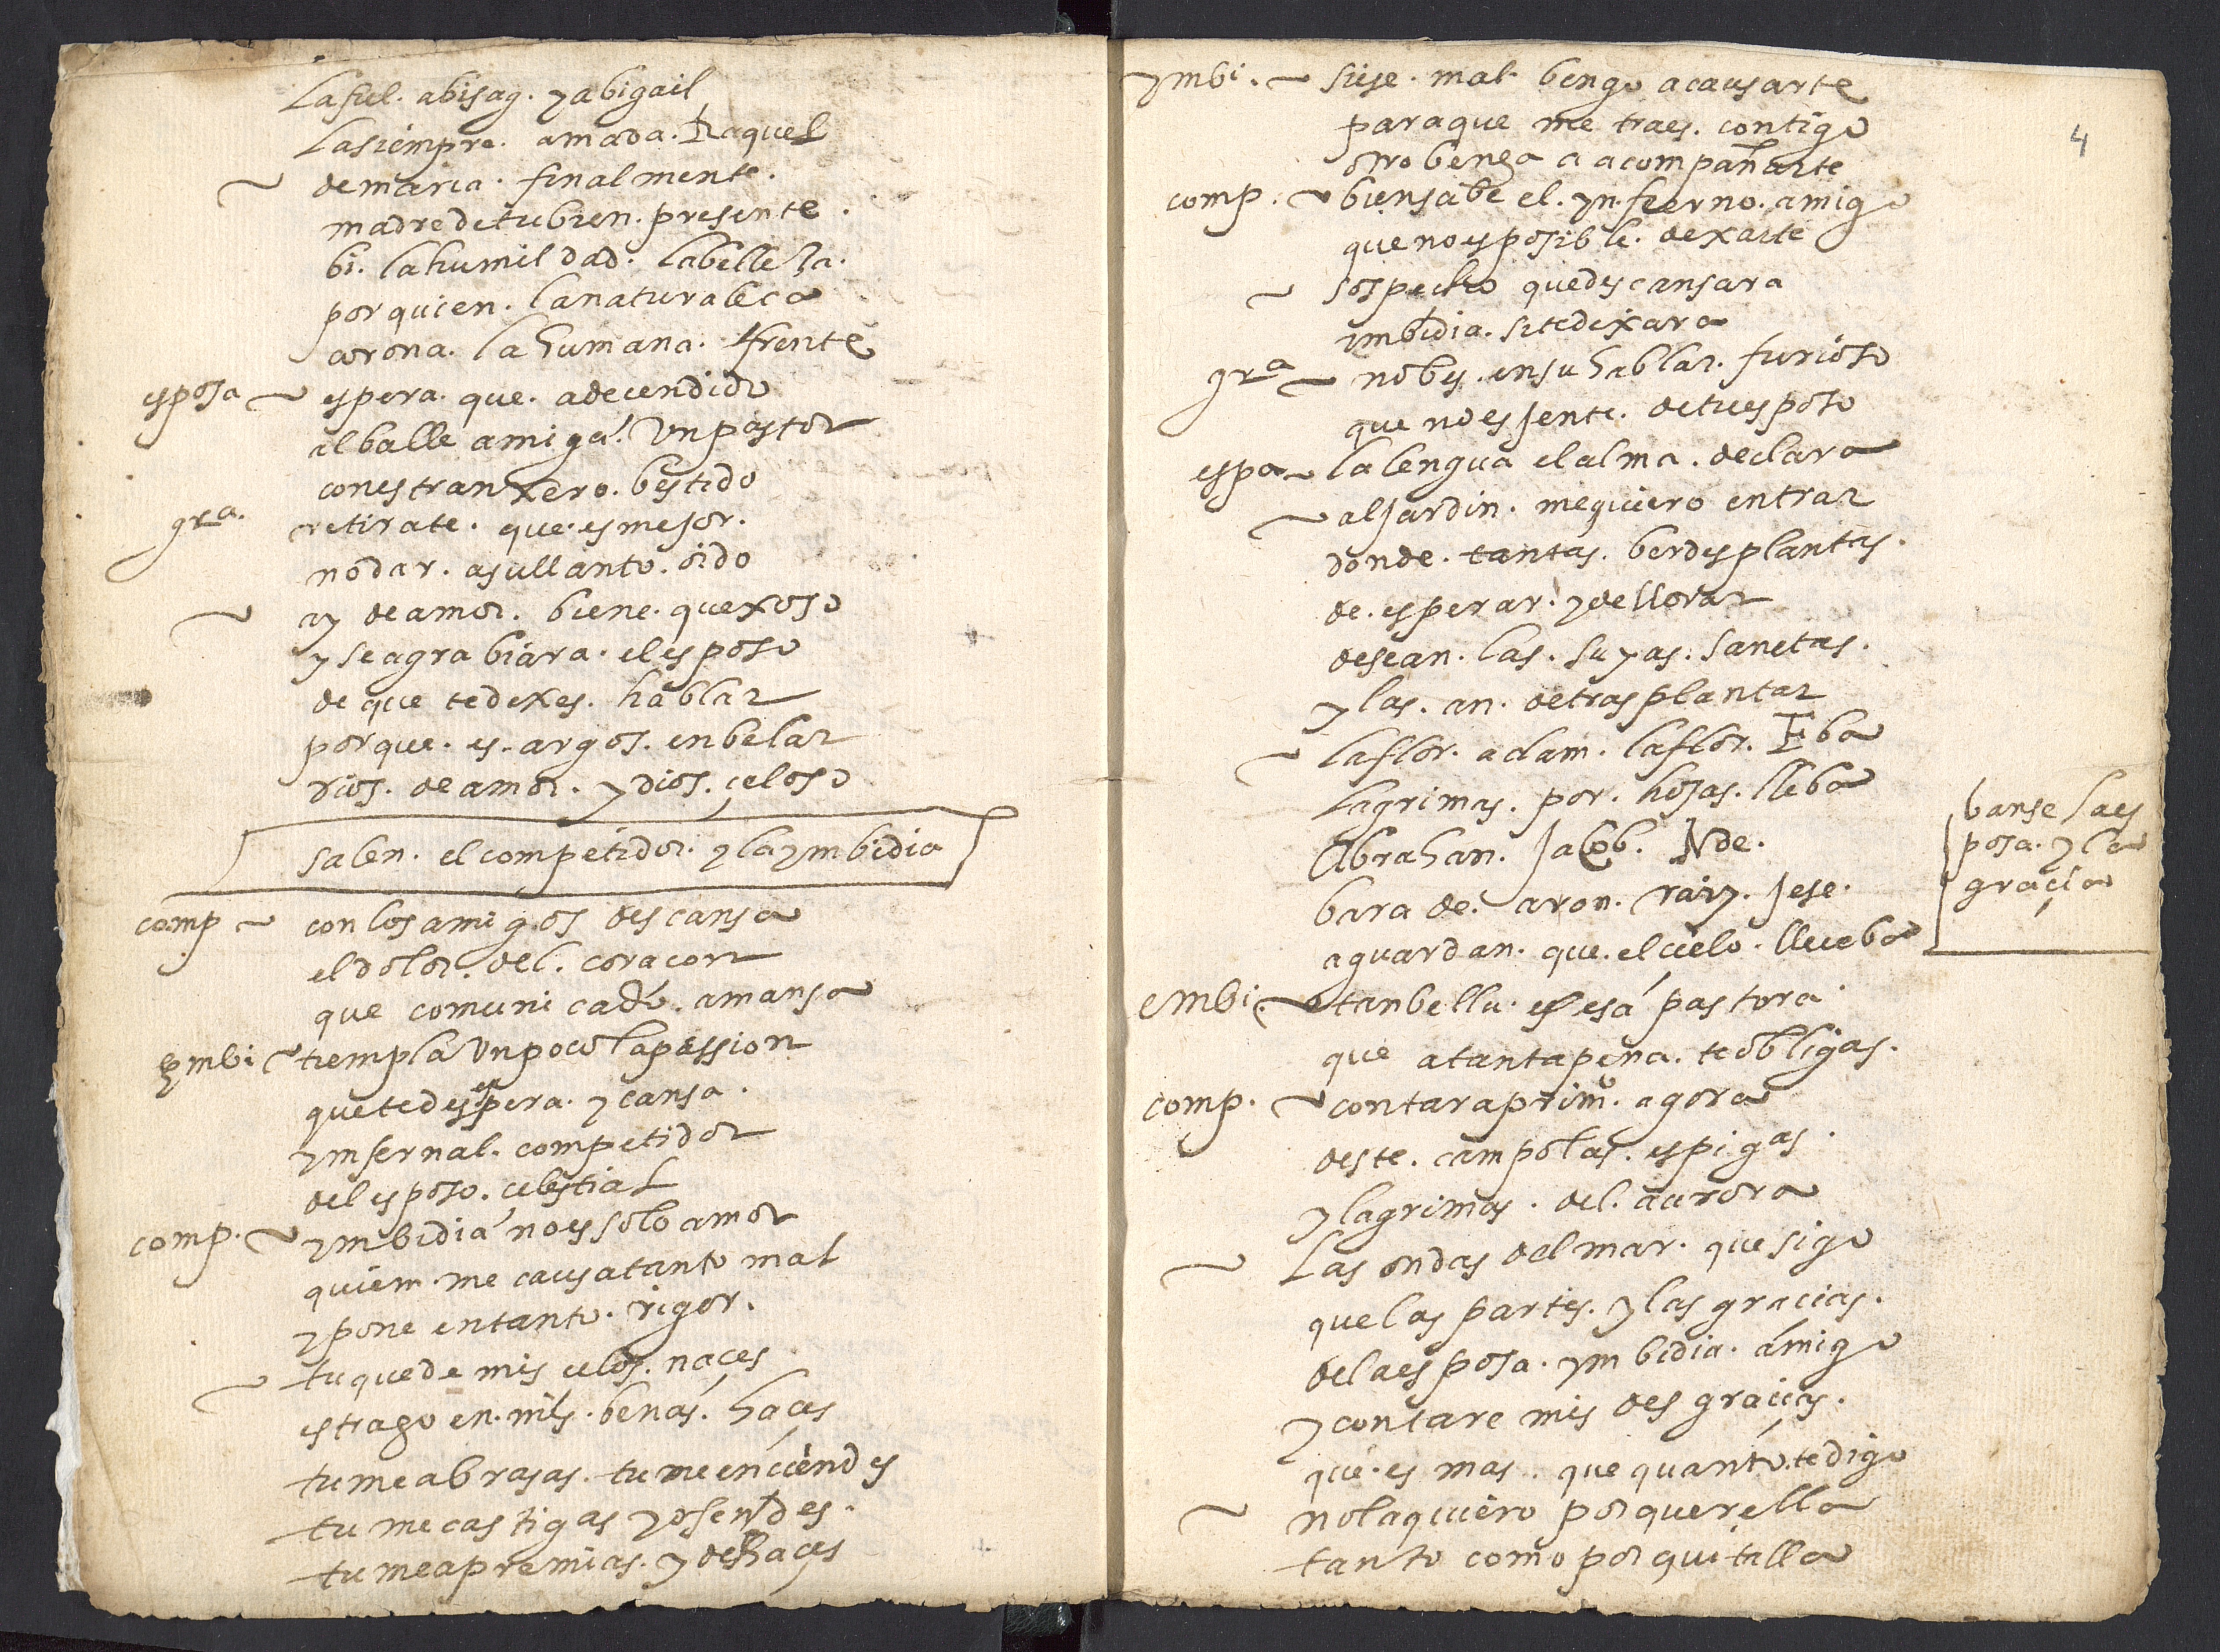 la fiel. abisag. y abigail
la siempre. amada. Raquel
~ de maria. finalmente.
madre de tu bien. presente.
bi. la humildad. la belleza.
por quien. la naturaleca
corona. la humana. frente
esposa ~ espera. que. a decendido
al balle amiga. Un pastor
con estranxero. bestido
gra. retirate. que. es mejor.
no dar. a su llanto. oido
~ ay de amor. biene. quexoso
y se agrabiara. el esposo
de que te dexes. hablar
porque. es. argos. en belar
dios. de amor. y dios. çeloso
salen. el competidor. y la ymbidia
comp ~ con los amigos descansa
el dolor. del. coracon
que comunicado. amansa
ymbi ~ tiempla Un poco la passion
que te desespera. y cansa.
ynfernal. competidor
del esposo. celestial
comp. ~ ymbidia no es solo amor
quiem. me causa tanto mal
y pone en tanto. rigor.
~ tu que de mis celos. naces
estrago en. mis. benas. haces
tu me abrasas. tu me enciendes
tu me castigas y ofendes.
tu me apremias. y deshaces
4
ymbi. ~ si ese. mal bengo a causarte
para que me traes. contigo
otro benga a acompañarte
comp. ~ bien sabe el. ynfierno. amigo
que no es posible. dexarte
~ sospecho que descansara
ymbidia. si te dexara
gra ~ no bes. en su hablar. furioso
que no es jente. de tu esposo
espa ~ la lengua el alma. declara
~ al jardin. me quiero entrar
donde. tantas. berdes plantas.
de. esperar. y de llorar
desean. las. suyas. sanctas.
y las. an. de trasplantar
~ la flor. adam. la flor. Eba
lagrimas. por. hojas. lleba
Abrahan. Jacob. Noe.
bara de. aron. raiz. Jese.
aguardan. que. el cielo. llueba
banse la es
posa. y la
graçia
embi. ~ tan bella. es esa pastora
que a tanta pena. te obligas.
comp. ~ contara primo. agora
deste. campo las. espigas.
y lagrimas. del. aurora
~ las ondas del mar. que sigo
que las partes. y las gracias.
de la esposa. ymbidia. amigo
y contare mis desgracias.
que. es mas. que quanto te digo
~ no la quiero por querella
tanto como por quitalla